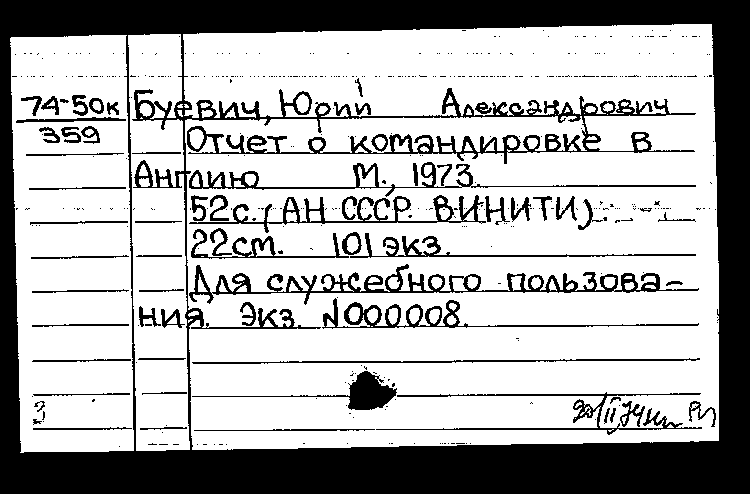 74-50к Буевич, Юрий Александрович
359 Отчет о командировке в
Англию М., 1973.
52с. (АН СССР. ВИНИТИ).
22см. 101 экз.
Для служебного пользова-
ния. Экз. N000008.
3